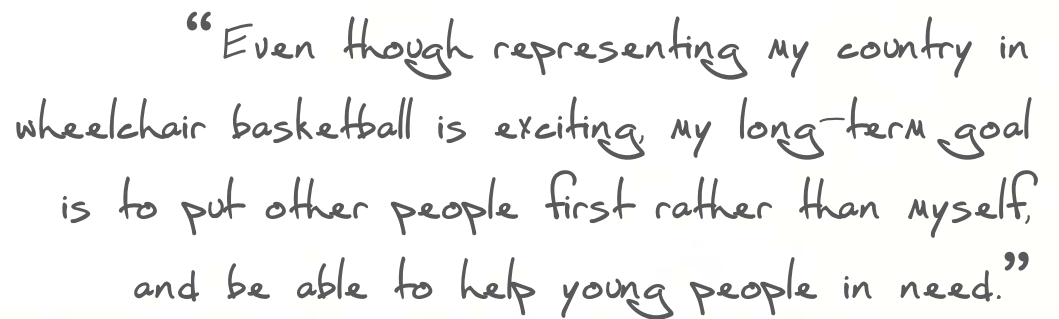 “Even though representing my country in
wheelchair basketball is exciting, my long-term goal
is to put other people first rather than myself,
and be able to help young people in need.”